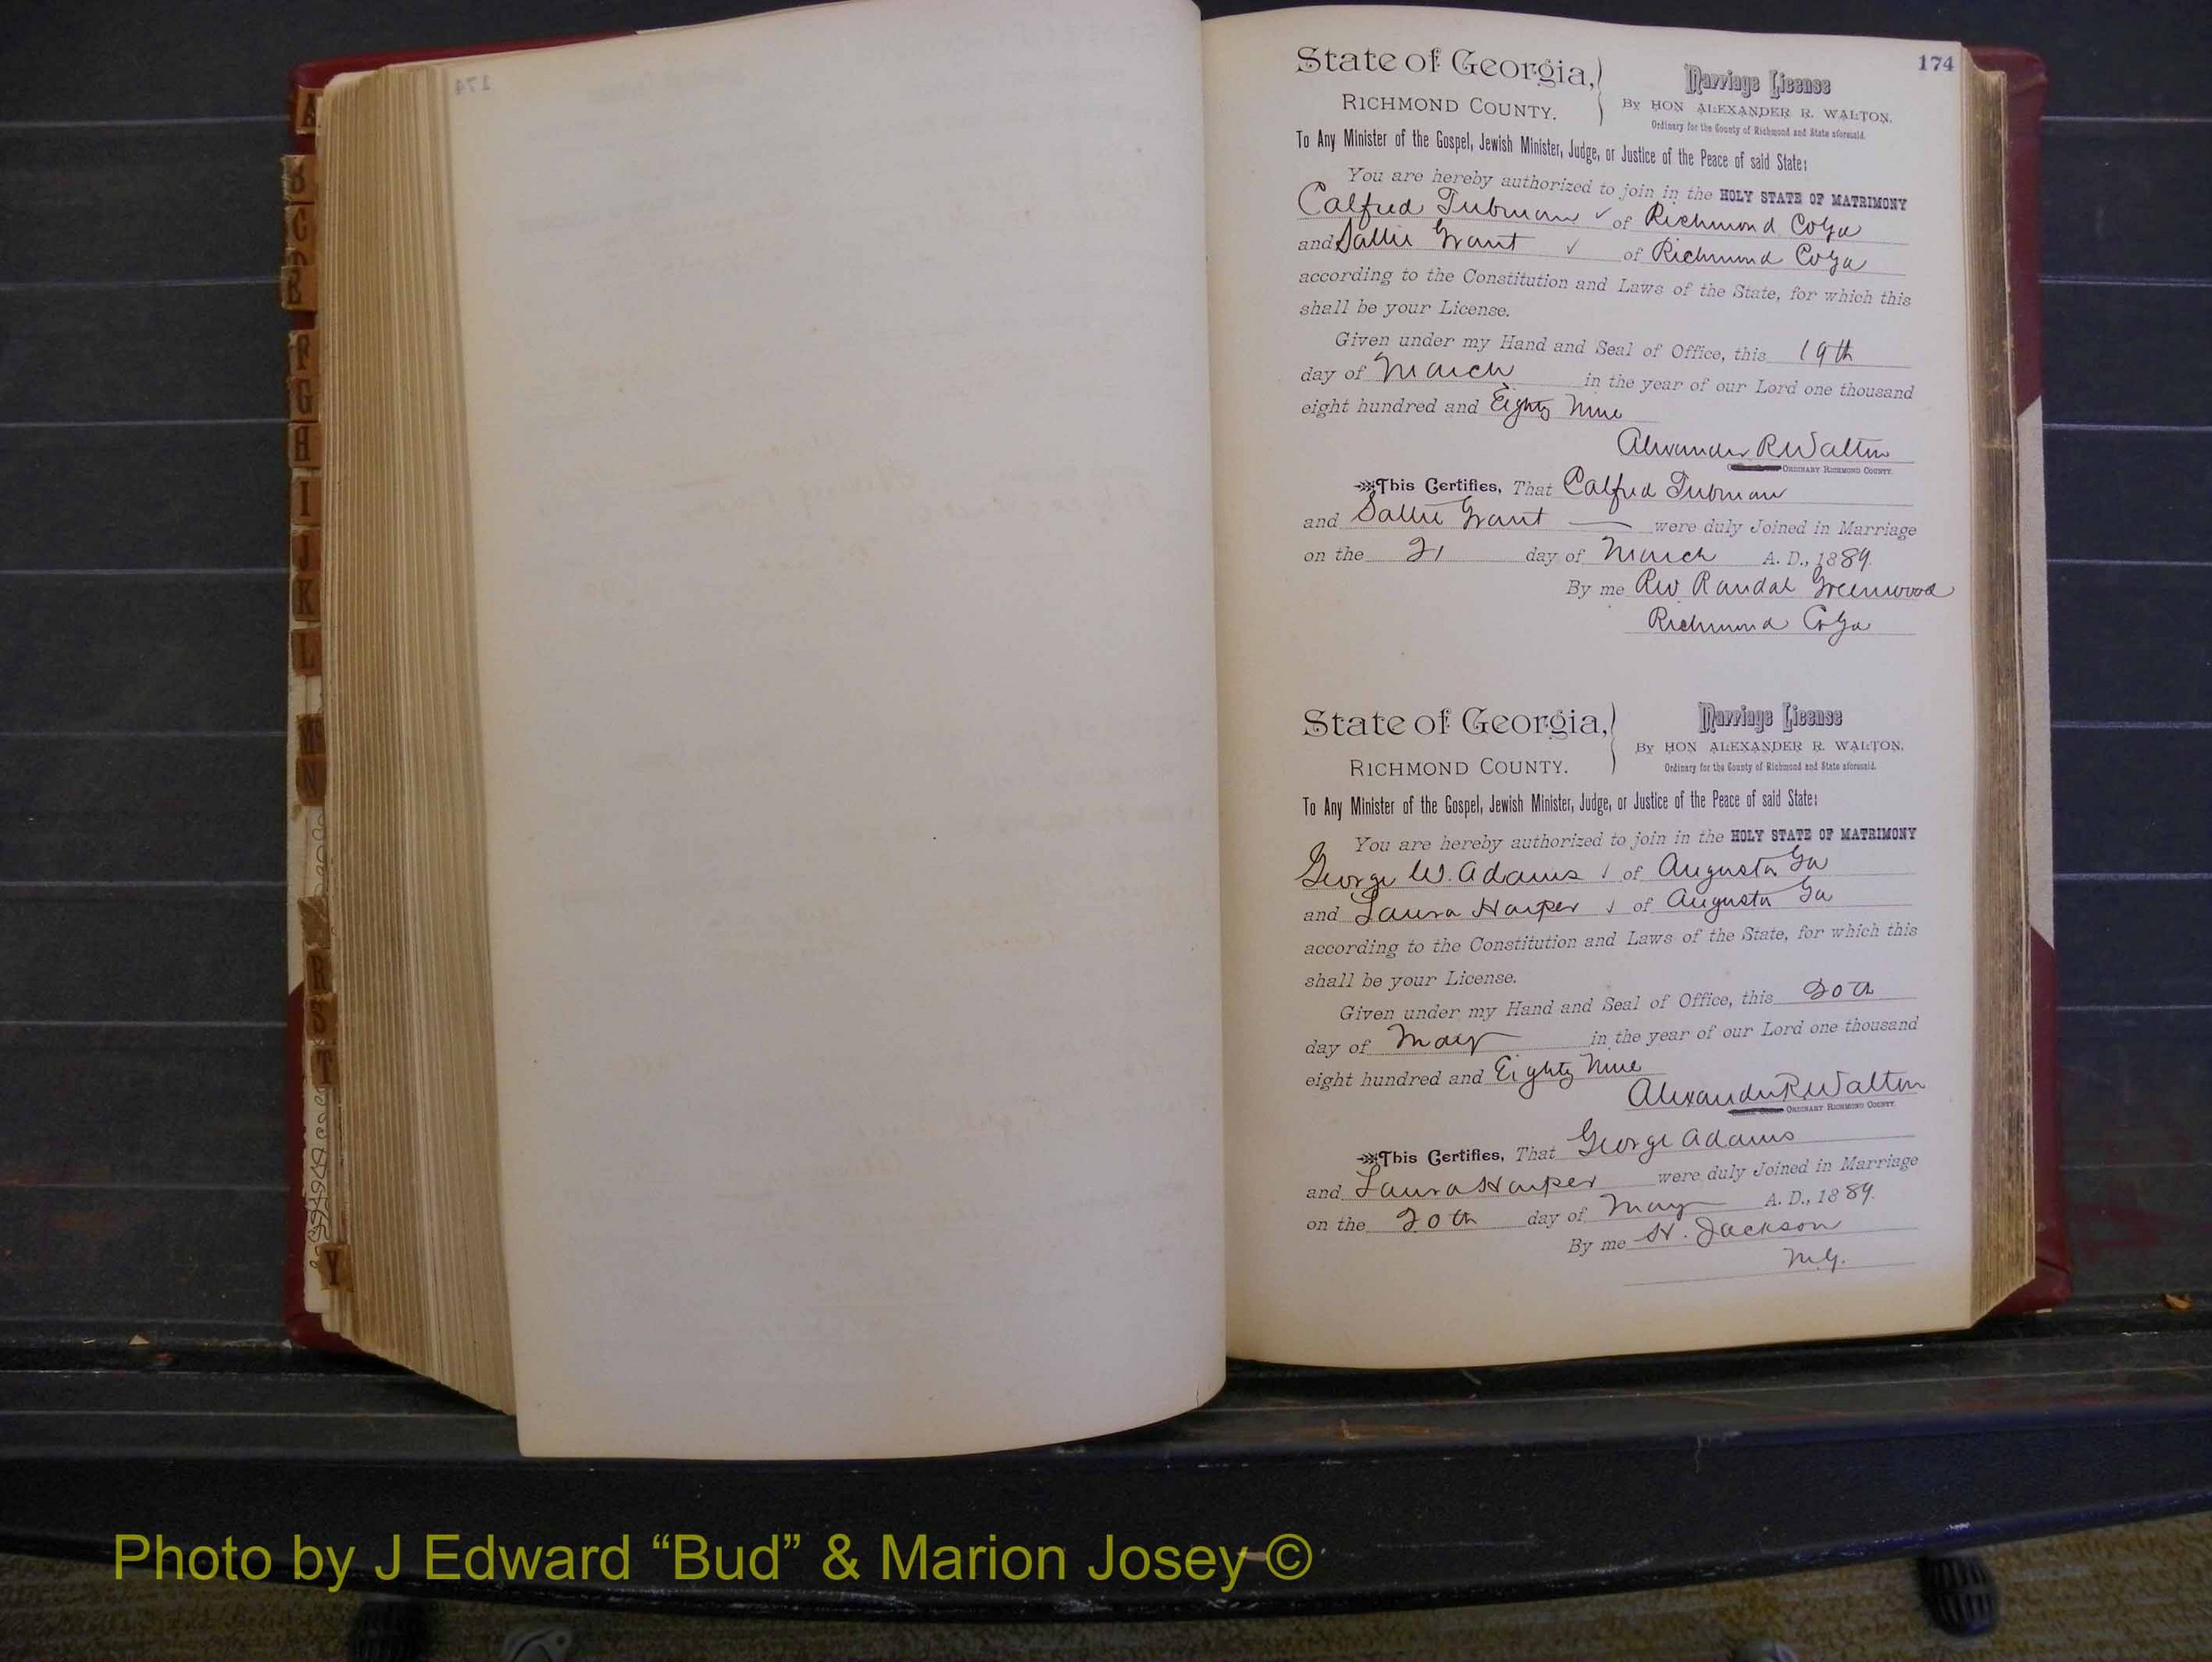 174
State of Georgia,
RICHMOND COUNTY.
Marriage License
By HON ALEXANDER R. WALTON,
Ordinary for the County of Richmond and State aforesaid.
To Any Minister of the Gospel, Jewish Minister, Judge, or Justice of the Peace of said State:
You are hereby authorized to join in the HOLY STATE OF MATRIMONY
Calfred Tubman ✓ of Richmond Co Ga
and Sallie Grant ✓ of Richmond Co Ga
according to the Constitution and Laws of the State, for which this
shall be your License.
Given under my Hand and Seal of Office, this 19th
day of March in the year of our Lord one thousand
eight hundred and Eighty Nine
Alexander R Walton
ORDINARY RICHMOND COUNTY.
This Certifies, That Calfred Tubman
and Sallie Grant were duly Joined in Marriage
on the 21 day of March A. D., 1889.
By me Rev Randal Greenwood
Richmond Co Ga
State of Georgia,
RICHMOND COUNTY.
Marriage License
By HON ALEXANDER R. WALTON,
Ordinary for the County of Richmond and State aforesaid.
To Any Minister of the Gospel, Jewish Minister, Judge, or Justice of the Peace of said State:
You are hereby authorized to join in the HOLY STATE OF MATRIMONY
George W. Adams ✓ of Augusta Ga
and Laura Harper ✓ of Augusta Ga
according to the Constitution and Laws of the State, for which this
shall be your License.
Given under my Hand and Seal of Office, this 20th
day of May in the year of our Lord one thousand
eight hundred and Eighty Nine
Alexander R Walton
ORDINARY RICHMOND COUNTY.
This Certifies, That George Adams
and Laura Harper were duly Joined in Marriage
on the 20th day of May A. D., 1889.
By me H. Jackson
M.G.
A
B
C
F
G
H
I
J
K
L
N
R
S
T
Y
Photo by J Edward “Bud” & Marion Josey ©